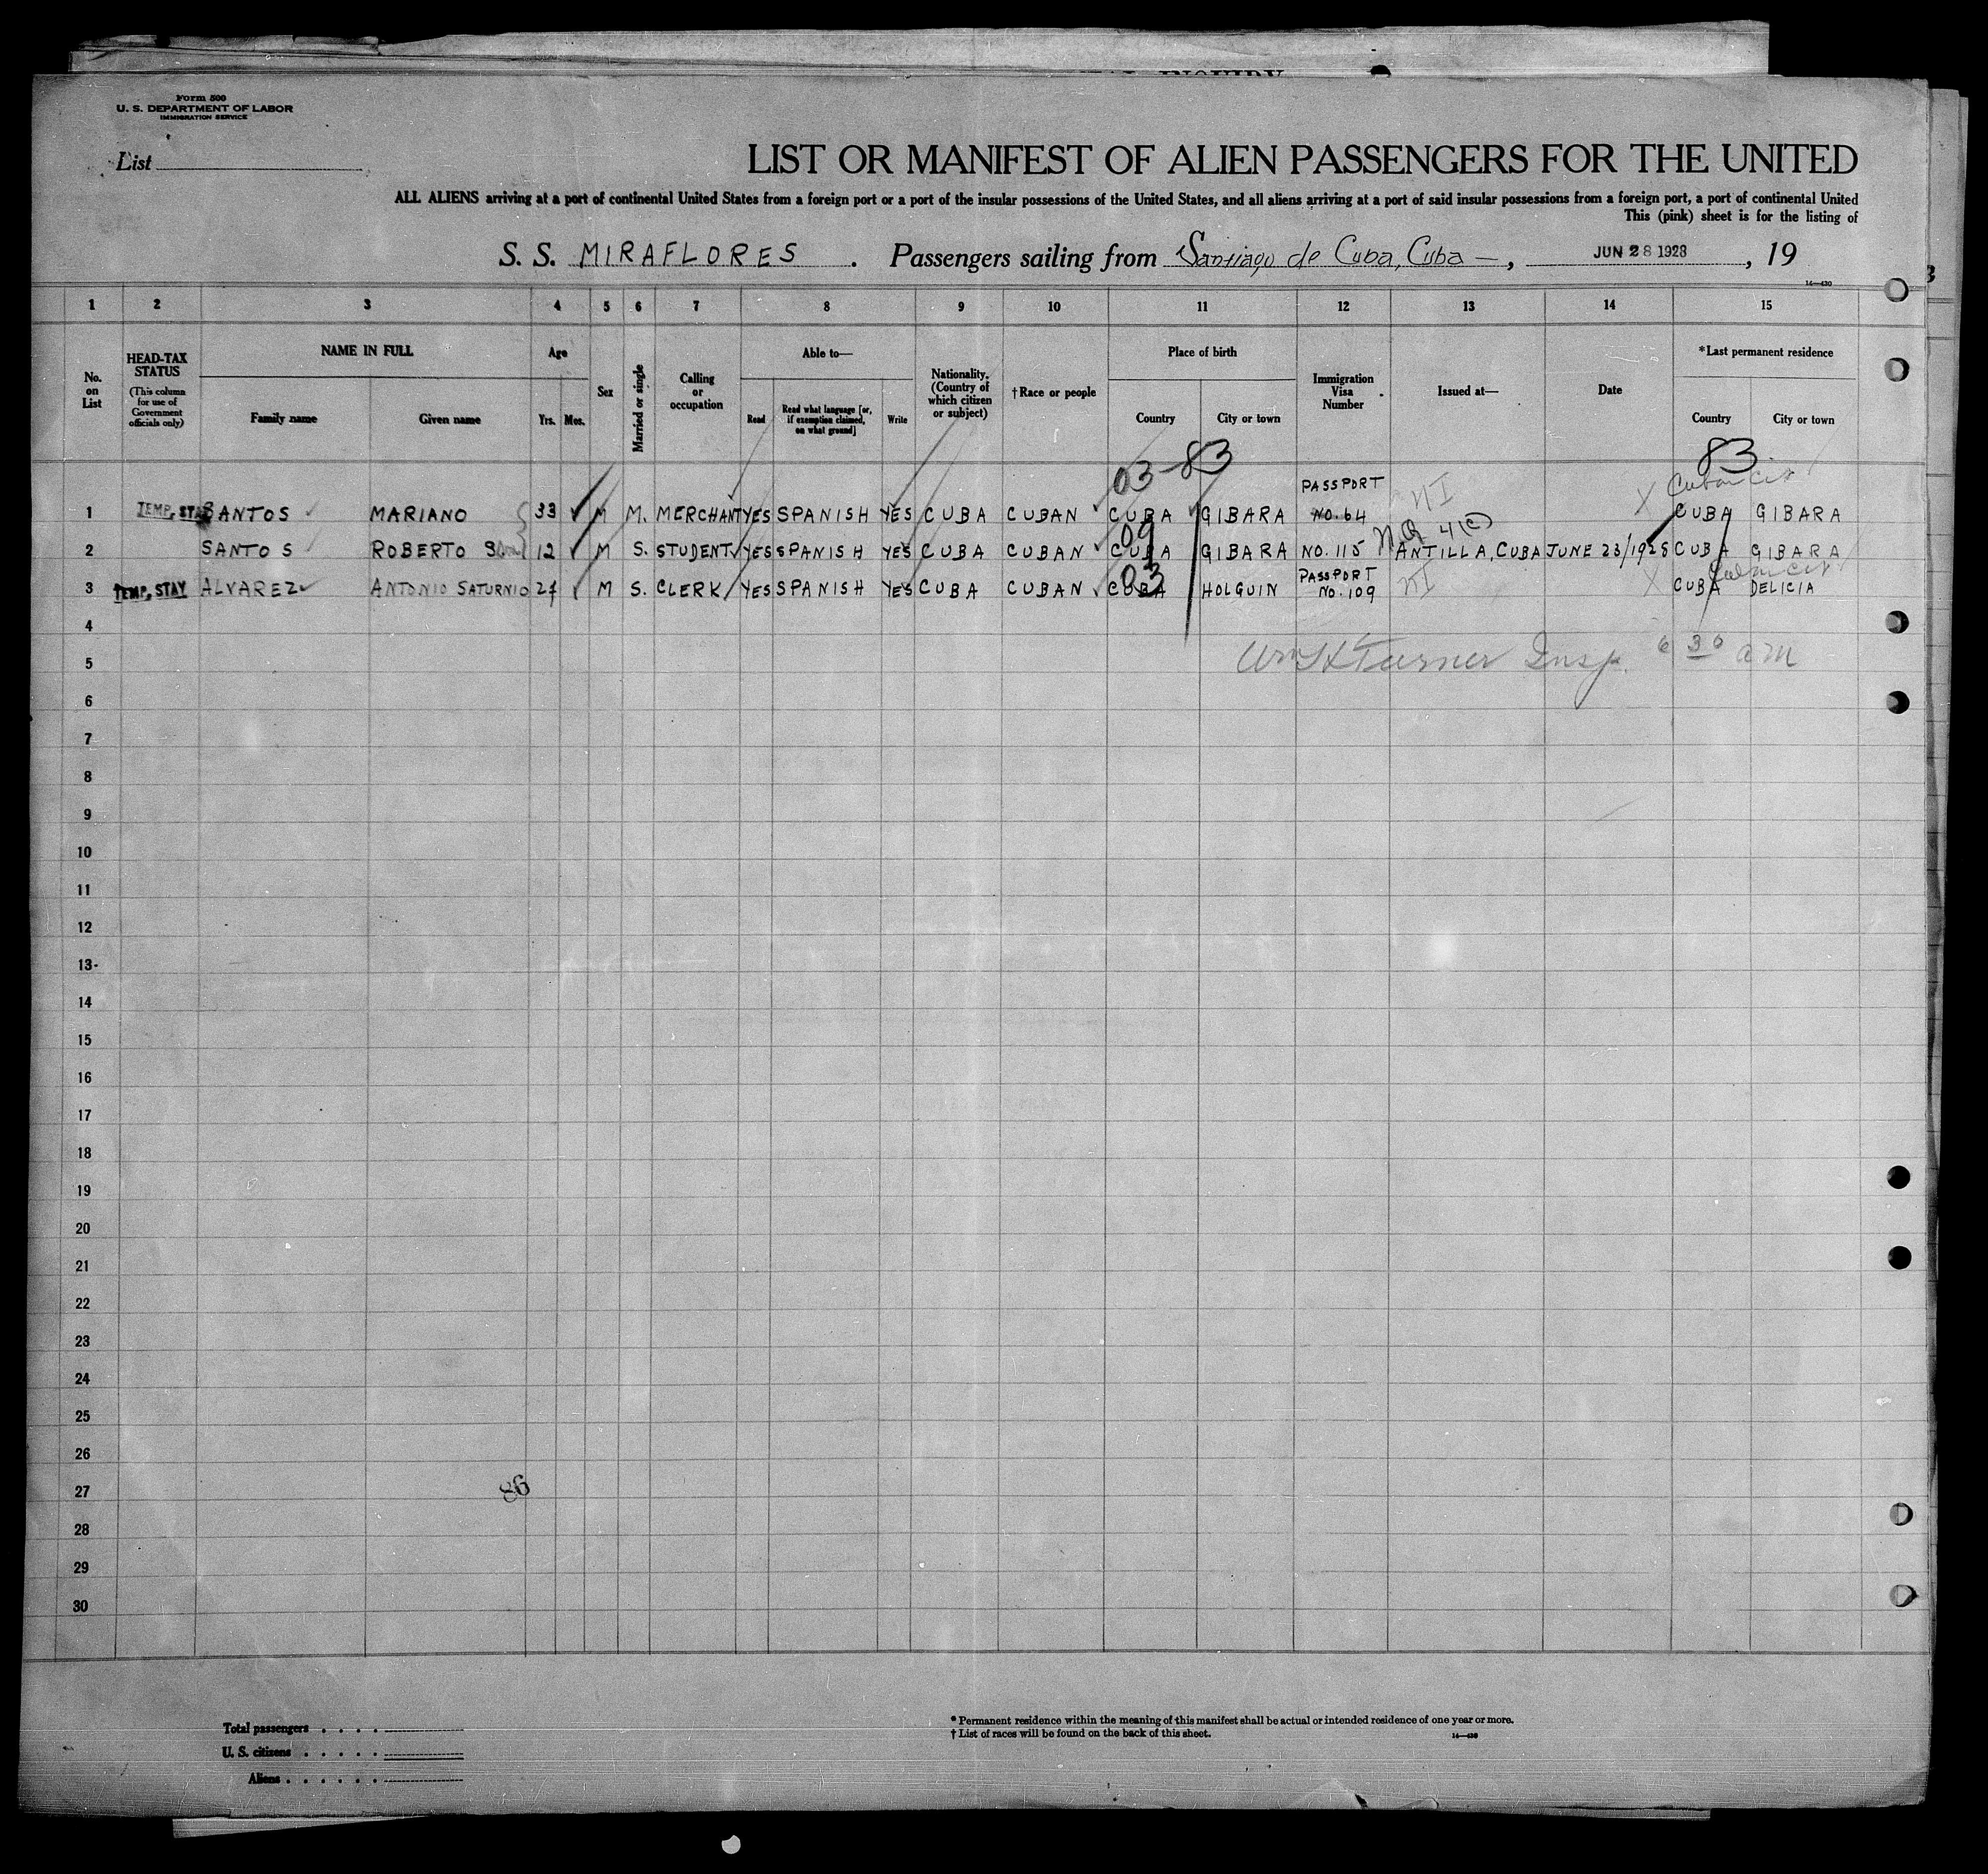 Form 500
U. S. DEPARTMENT OF LABOR
IMMIGRATION SERVICE
List
LIST OR MANIFEST OF ALIEN PASSENGERS FOR THE UNITED
ALL ALIENS arriving at a port of continental United States from a foreign port or a port of the insular possessions of the United States, and all aliens arriving at a port of said insular possessions from a foreign port, a port of continental United
This (pink) sheet is for the listing of
S. S. MIRAFLORES . Passengers sailing from Santiago de Cuba, Cuba — , JUN 28 1928 , 19
14—430
1 2 3 4 5 6 7 8 9 10 11 12 13 14 15
No. on List
HEAD-TAX STATUS
(This column for use of Government officials only)
NAME IN FULL
Family name
Given name
Age
Yrs. Mos.
Sex
Married or single
Calling or occupation
Able to—
Read
Read what language [or, if exemption claimed, on what ground]
Write
Nationality. (Country of which citizen or subject)
†Race or people
Place of birth
Country
City or town
Immigration Visa Number
Issued at—
Date
*Last permanent residence
Country
City or town
03-83
83
1 TEMP. STAY SANTOS MARIANO 33 M M. MERCHANT YES SPANISH YES CUBA CUBAN CUBA GIBARA PASSPORT NO. 64 NI X Cuban Cit CUBA GIBARA
2 SANTOS ROBERTO 12 M S. STUDENT YES SPANISH YES CUBA CUBAN CUBA 09 GIBARA NO. 115 NQ 4(c) ANTILLA, CUBA JUNE 23/1928 CUBA GIBARA
3 TEMP. STAY ALVAREZ ANTONIO SATURNIO 24 M S. CLERK YES SPANISH YES CUBA CUBAN CUBA 03 HOLGUIN PASSPORT NO. 109 NI X Cuban Cit CUBA DELICIA
4
5 Wm H Turner Insp. 6 30 am
6
7
8
9
10
11
12
13
14
15
16
17
18
19
20
21
22
23
24
25
26
27 86
28
29
30
Total passengers
U. S. citizens
Aliens
* Permanent residence within the meaning of this manifest shall be actual or intended residence of one year or more.
† List of races will be found on the back of this sheet.
14—430